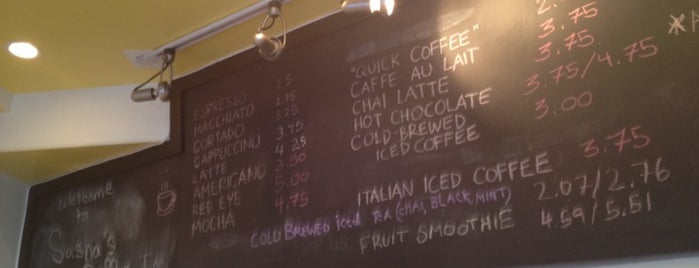 ESPRESSO 2.5
MACCHIATO 2.75
CORTADO 3.5
CAPPUCCINO 3.75
LATTE 4.25
AMERICANO 2.50
RED EYE 5.00
MOCHA 4.75
"QUICK COFFEE"
CAFFE AU LAIT 3.75
CHAI LATTE 3.75
HOT CHOCOLATE 3.75/4.75
COLD-BREWED 3.00
ICED COFFEE
ITALIAN ICED COFFEE 3.75
COLD BREWED Iced TEA (CHAI, BLACK, MINT) 2.07/2.76
FRUIT SMOOTHIE 4.59/5.51
Welcome
to
Sasha's